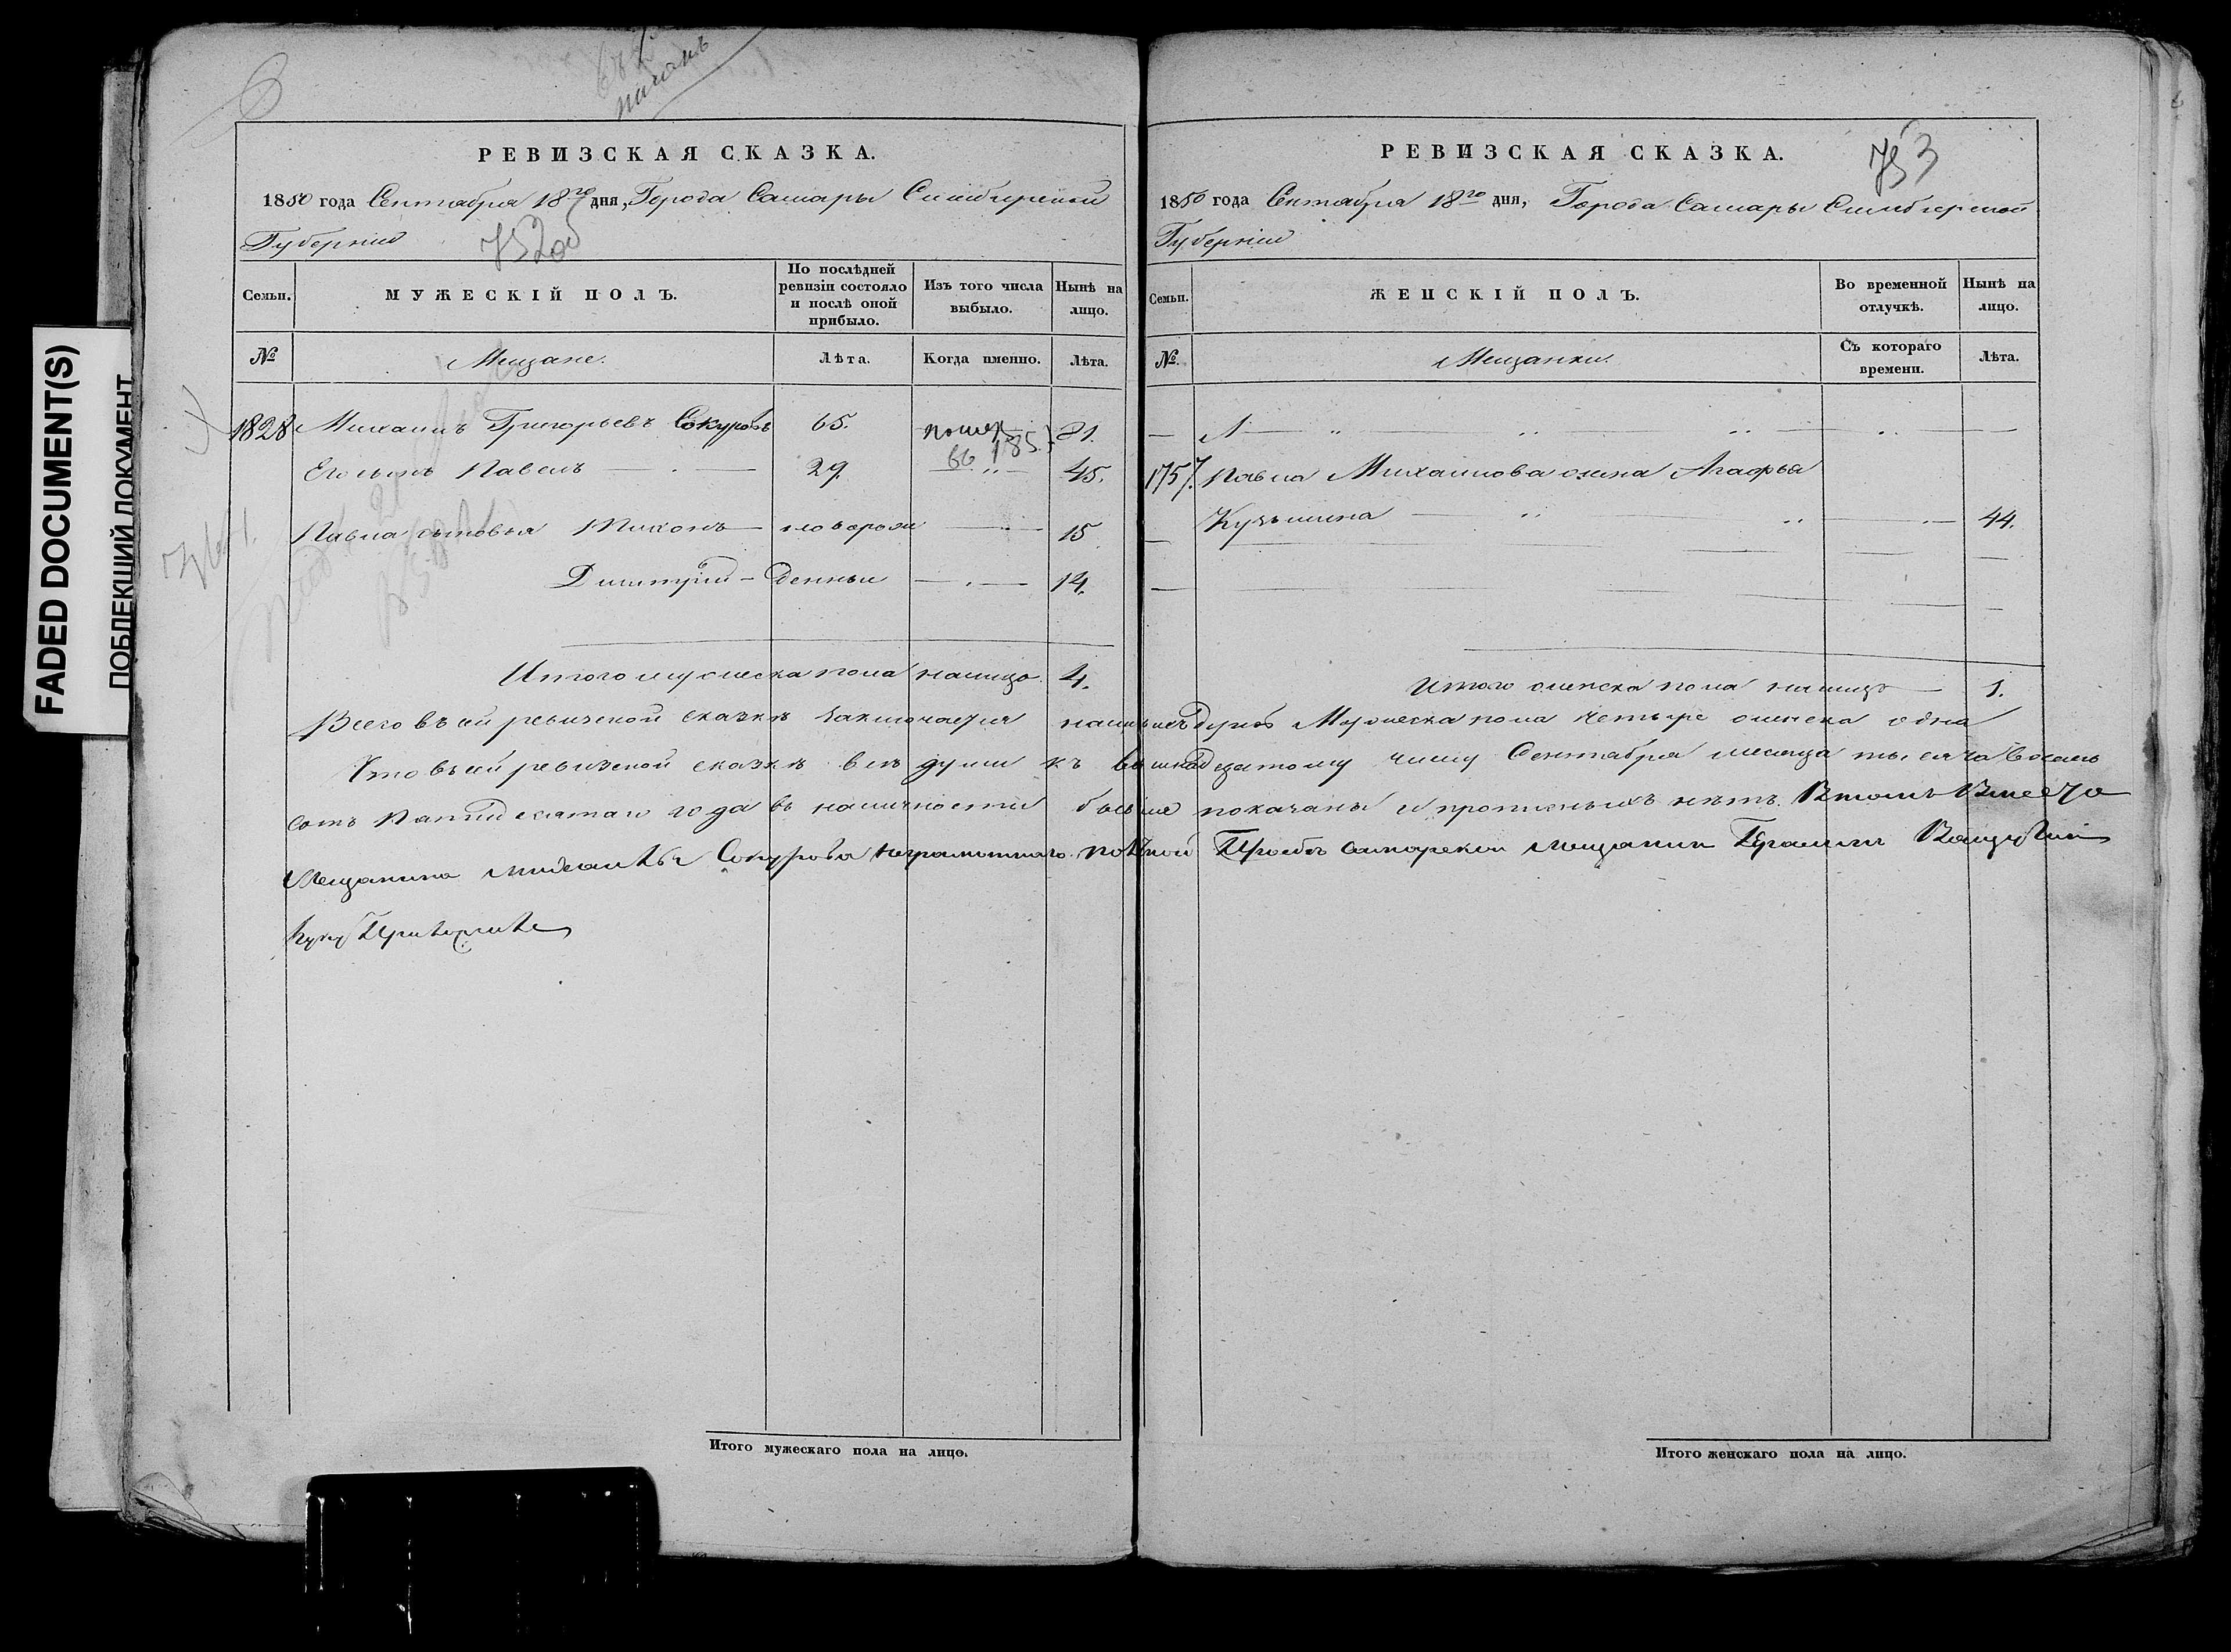 FADED DOCUMENT(S)
ПОБЛЕКШИЙ ДОКУМЕНТ
РЕВИЗСКАЯ СКАЗКА.
1850 года Сентября 18го дня, Города Самары Симбирской
Губернiи
752об
Семьи.
МУЖЕСКIЙ ПОЛЪ.
По послѣдней ревизiи состояло и послѣ оной прибыло.
Изъ того числа выбыло.
Нынѣ на лицо.
№
Мещане.
Лѣта.
Когда именно.
Лѣта.
1828 Михаилъ Григорьевъ Сокуровъ 65. 81.
Его сынъ Павелъ 29. 45.
Павла сыновья Тихонъ новорож 15
Дмитрiй денные 14.
Итого мужеска пола налицо 4.
РЕВИЗСКАЯ СКАЗКА.
753
1850 года Сентября 18го дня, Города Самары Симбирской
Губернiи
Семьи.
ЖЕНСКIЙ ПОЛЪ.
Во временной отлучкѣ.
Нынѣ на лицо.
№.
Мещанки.
Съ котораго времени.
Лѣта.
1757. Павла Михайлова жена Агафья
Кузьмина 44.
Итого женска пола налицо 1.
Всего въ сей ревизской сказкѣ заключается наличныхъ душъ Мужеска пола четыре женска одна
Что въ сей ревизской сказкѣ всѣ души къ восемнадцатому числу Сентября месяца тысяча восемь
сотъ пятидесятаго года въ наличности бывшiе показаны и прописныхъ нѣтъ. Втомъ Вместо
Мещанина Сокурова неграмотнаго Прозбѣ самарской мещанин
Руку Приложилъ
Итого мужескаго пола на лицо.
Итого женскаго пола на лицо.